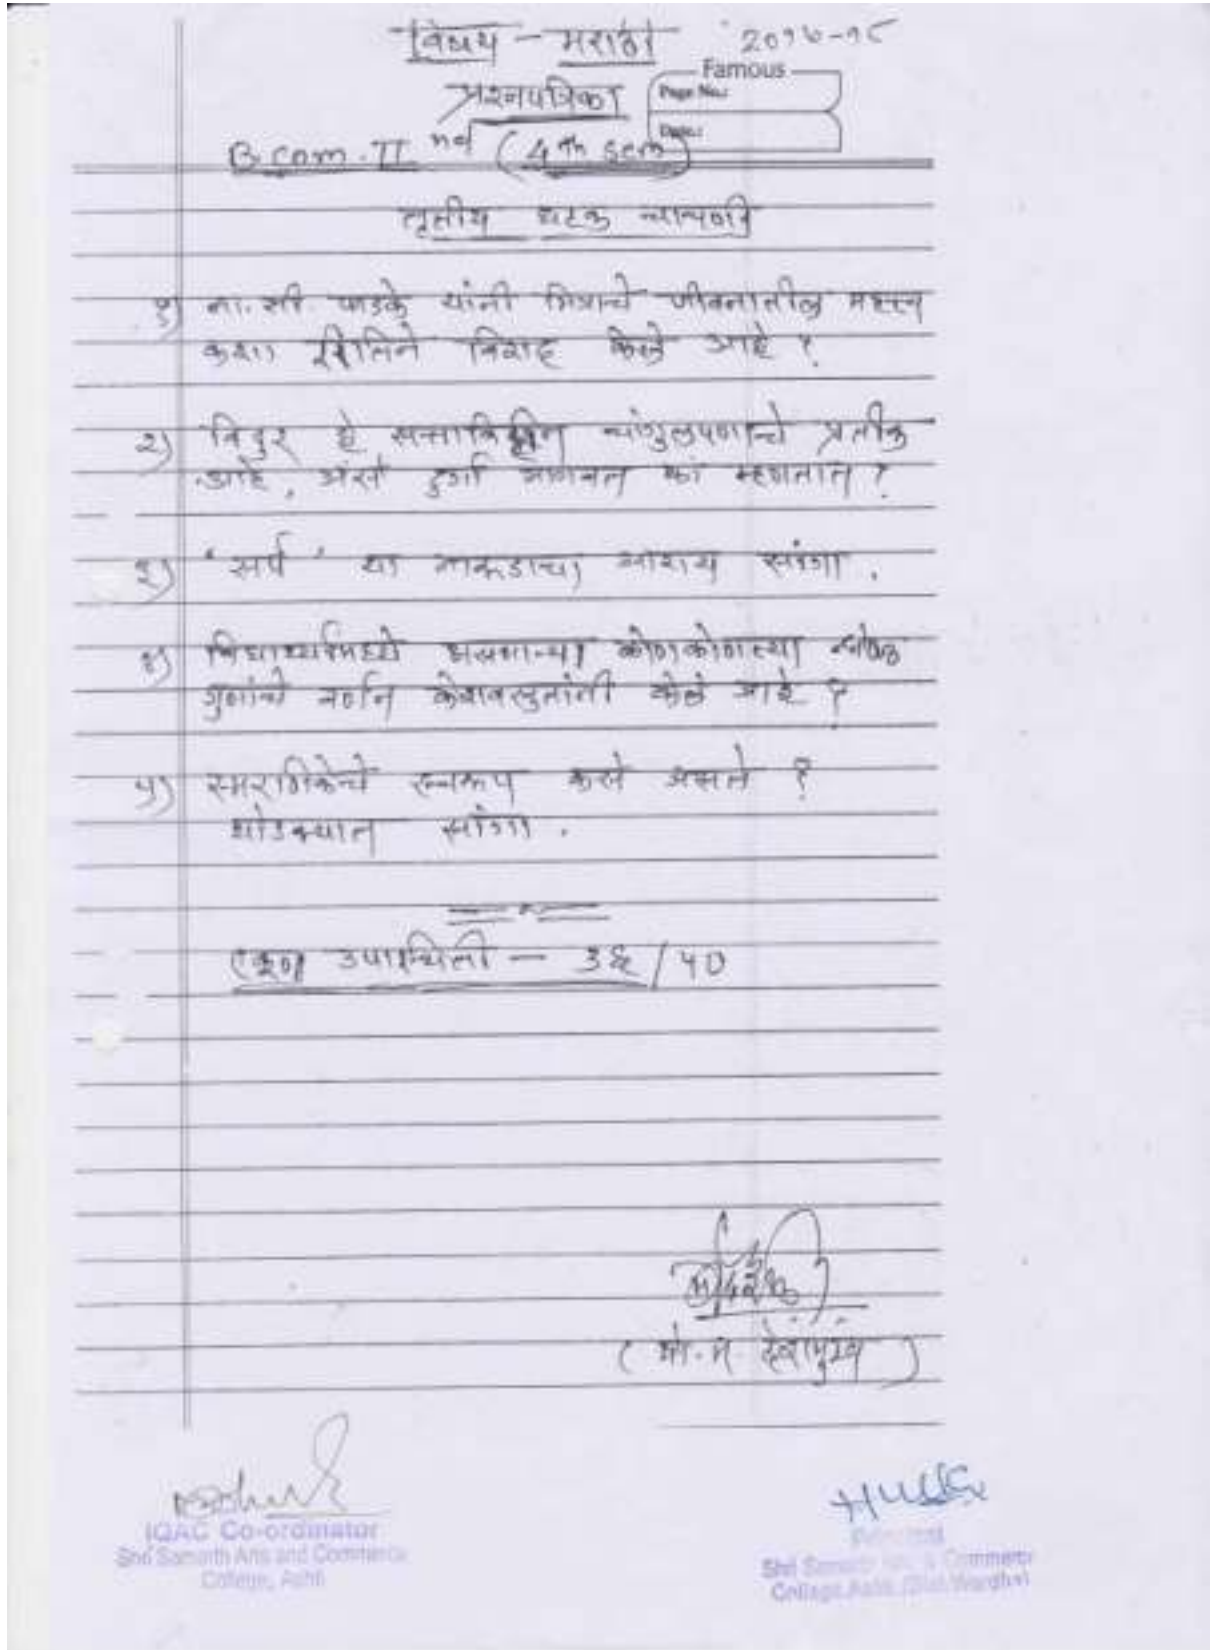 विषय - मराठी २०१७-१८
Famous
प्रश्नपत्रिका
Page No.:
Date:
B.com. II nd (4th sem)
तृतीय घटक चाचणी
१) ना. सी. फडके यांनी मित्राचे जीवनातील महत्त्व
कशा रीतिने विशद केले आहे ?
२) विदुर हे सत्ताविहीन चांगुलपणाचे प्रतीक
आहे, असे दुर्गा भागवत का म्हणतात ?
३) 'सर्प' या रूपकाचा आशय सांगा .
४) विद्यार्थ्यांमध्ये असणाऱ्या कोणकोणत्या
गुणांचे वर्णन केशवसुतांनी केले आहे ?
५) स्मरणिकेचे स्वरूप कसे असते ?
थोडक्यात सांगा .
एकूण उपस्थिती - ३६/५०
( प्रो. म देशमुख )
IQAC Co-ordinator
Shri Samarth Arts and Commerce
College, Ashti
Principal
Shri Samarth Arts & Commerce
College, Ashti (Dist. Wardha)